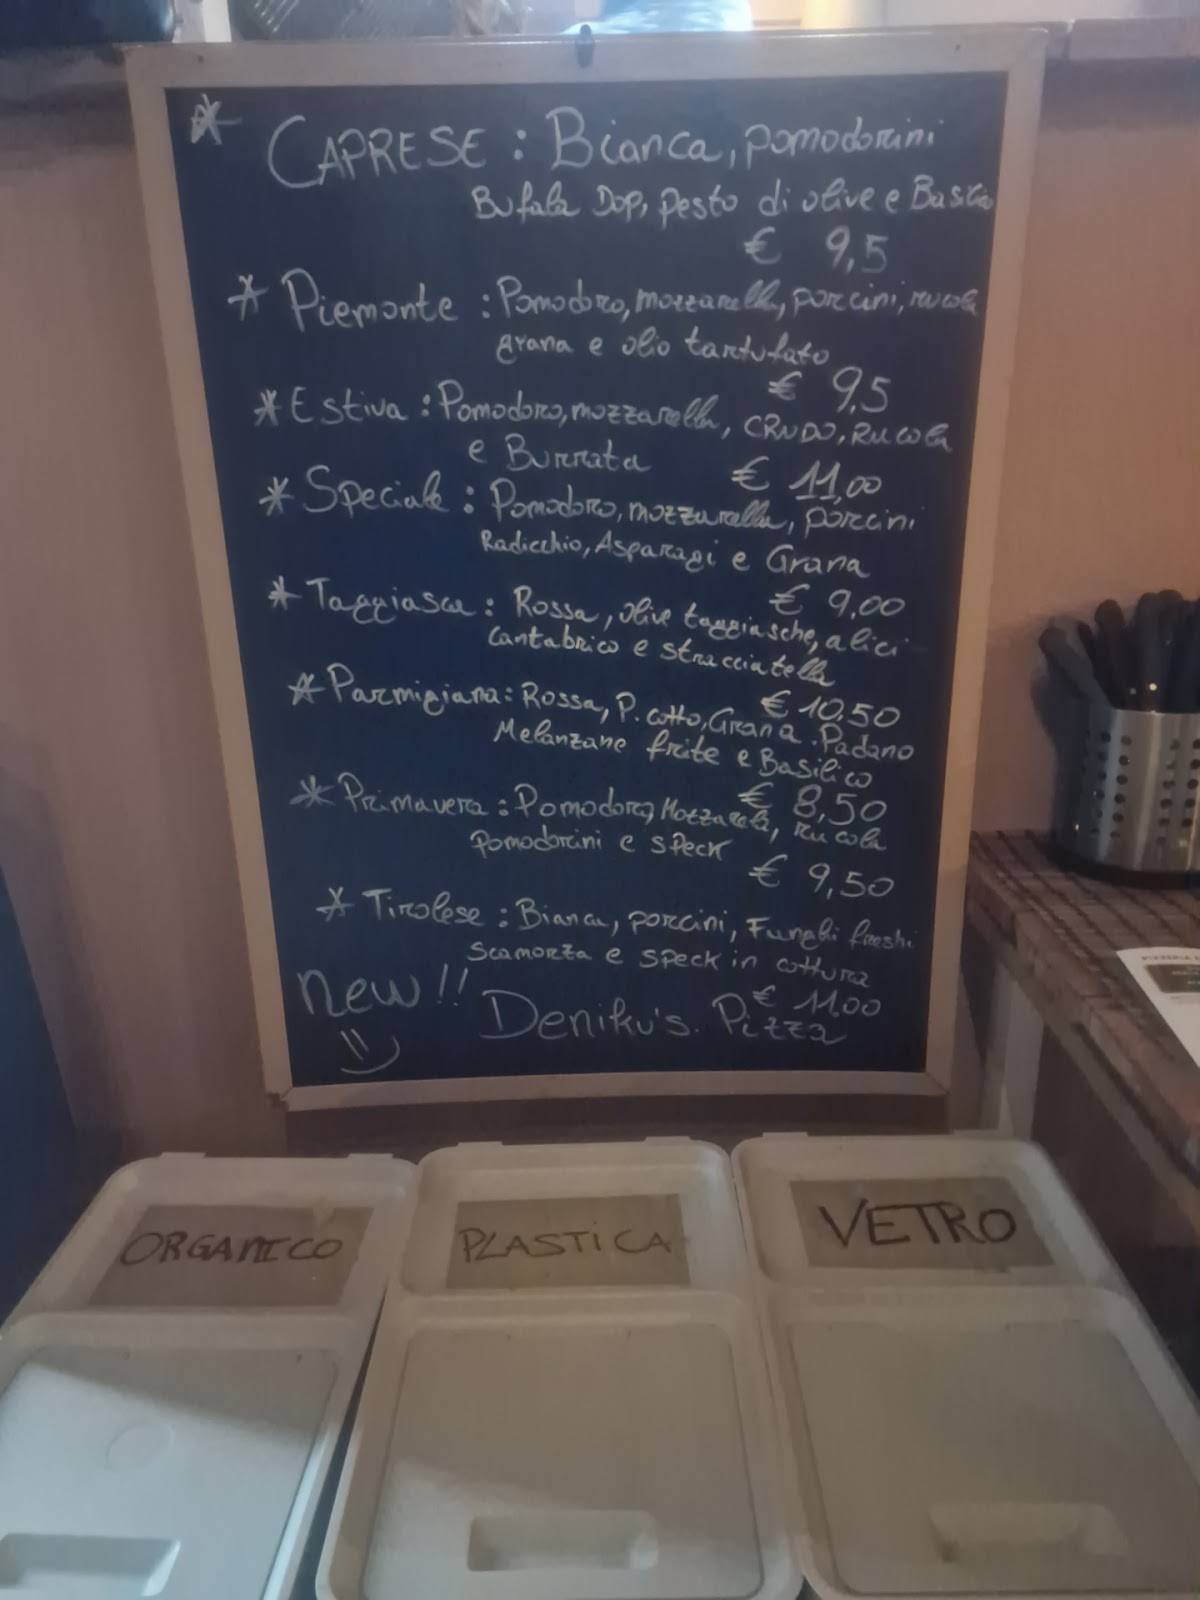 * CAPRESE : Bianca, pomodorini
Bufala DOP, pesto di olive e Basilico
€ 9,5
* Piemonte : Pomodoro, mozzarella, porcini, rucola
grana e olio tartufato
€ 9,5
* Estiva : Pomodoro, mozzarella, CRUDO, Rucola
e Burrata € 11,00
* Speciale : Pomodoro, mozzarella, porcini
Radicchio, Asparagi e Grana
€ 9,00
* Taggiasca : Rossa, olive taggiasche, alici
Cantabrico e stracciatella
€ 10,50
* Parmigiana : Rossa, P. cotto, Grana Padano
Melanzane frite e Basilico
€ 8,50
* Primavera : Pomodoro, Mozzarella, rucola
Pomodorini e speck
€ 9,50
* Tirolese : Bianca, porcini, Funghi freshi
Scamorza e speck in cottura
€ 11,00
new!! Deniku's Pizza
ORGANICO
PLASTICA
VETRO
PIZZERIA